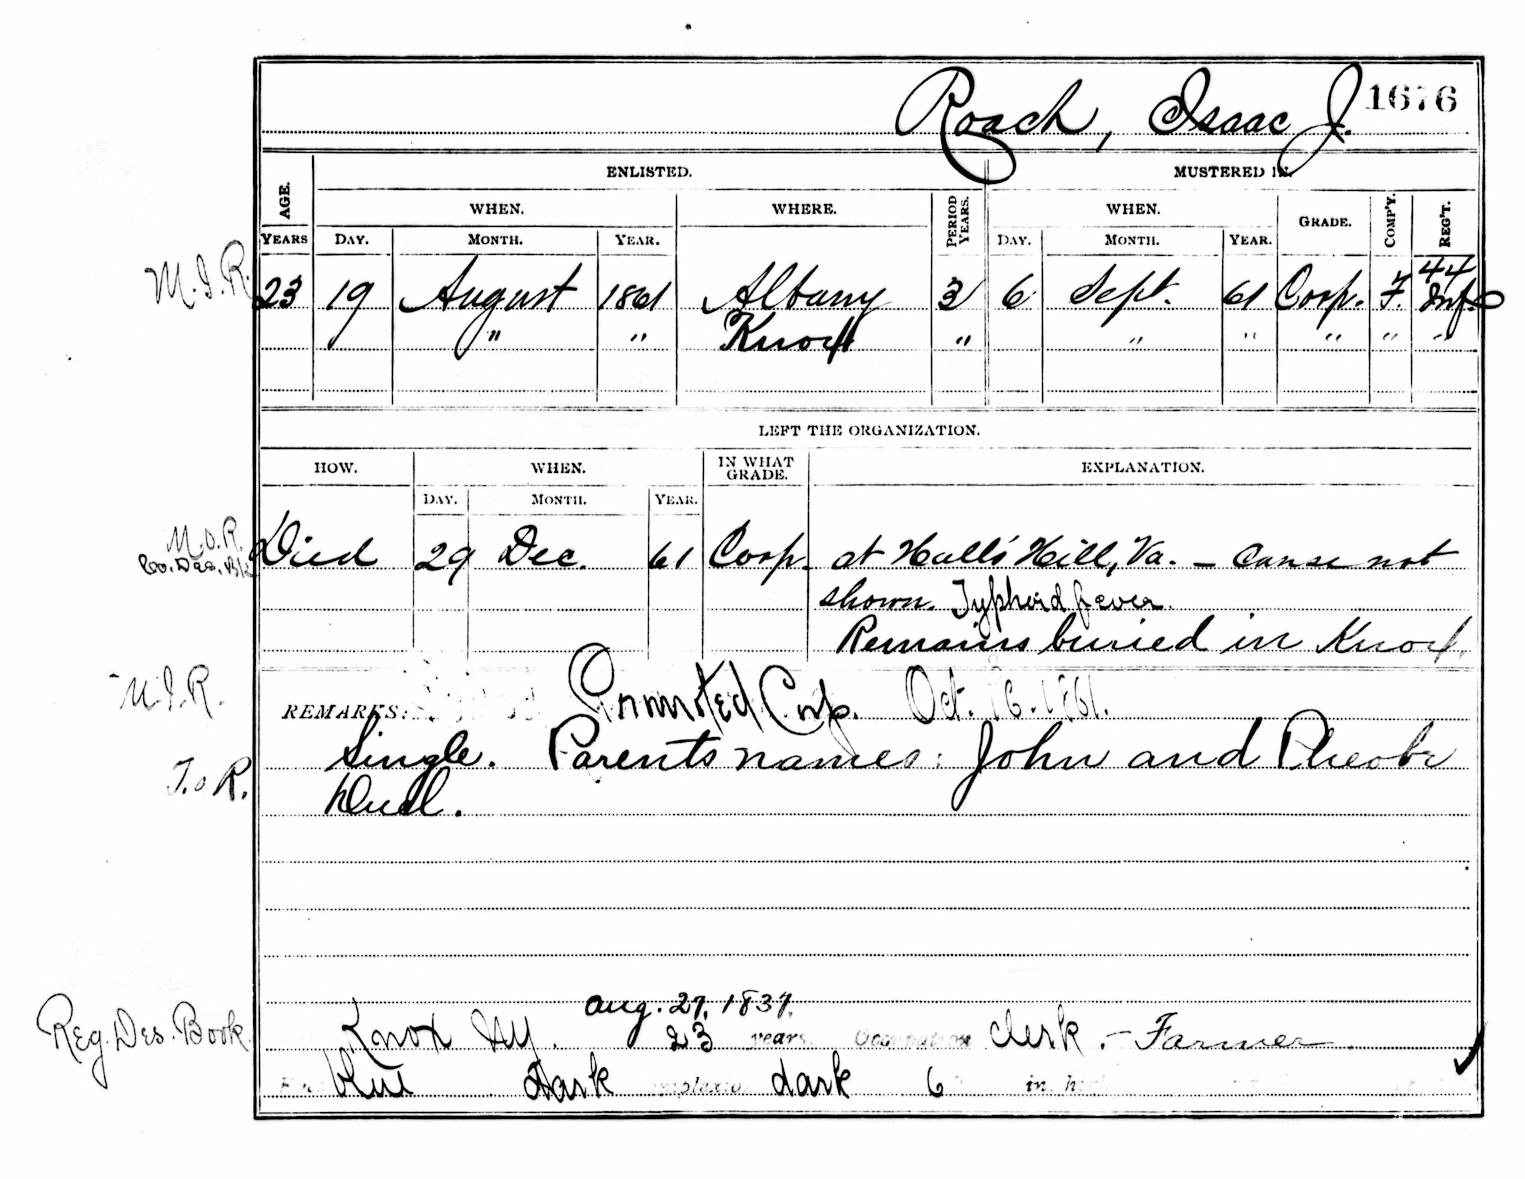 Roach, Isaac J. 1676
ENLISTED. MUSTERED IN.
AGE. WHEN. WHERE. PERIOD YEARS. WHEN. GRADE. COMP'Y. REG'T.
YEARS DAY. MONTH. YEAR. DAY. MONTH. YEAR.
M.I.R. 23 19 August 1861 Albany 3 6 Sept. 61 Corp. F. 44 Inf.
" " " Knox " " " " " "
LEFT THE ORGANIZATION.
HOW. WHEN. IN WHAT GRADE. EXPLANATION.
DAY. MONTH. YEAR.
M.O.R. Died 29 Dec. 61 Corp. at Hall's Hill, Va. – Cause not
Co. Des. Bk
shown. Typhoid fever.
Remains buried in Knox.
M.I.R. REMARKS: Promoted Corp. Oct. 1861.
Single. Parents names: John and Pheobe
T. o R.
Aug. 27, 1837.
Reg. Des. Book Knox NY. 23 years Occupation Clerk. – Farmer.
dark complexion dark 6 in. high